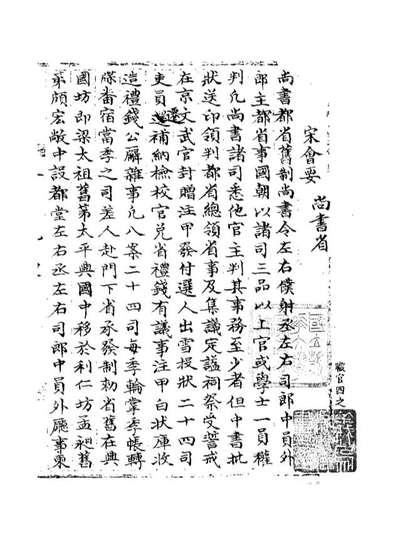 宋會要
尚書省
尚書都省舊制尚書令左右僕射丞左右司郎中員外
郎主都省事國朝以諸司三品以上官或學士一員權
判凡尚書諸司悉他官主判其事務至少者但中書批
狀送印領判都省總領省事及集議定謚祠祭受誓戒
在京文武官封贈注甲發付選人出雪投狀二十四司
吏員遷補納檢校官兌省禮錢有議事注甲白狀庫收
造禮錢公廨雜事凡八案二十四司每季輪掌季帳轉
牒番宿當季之司差人赴門下省承發制勑省舊在興
國坊即梁太祖舊第太平興國中移於利仁坊孟昶舊
第頗宏敞中設都堂左右丞左右司郎中員外廳事東
職官四之